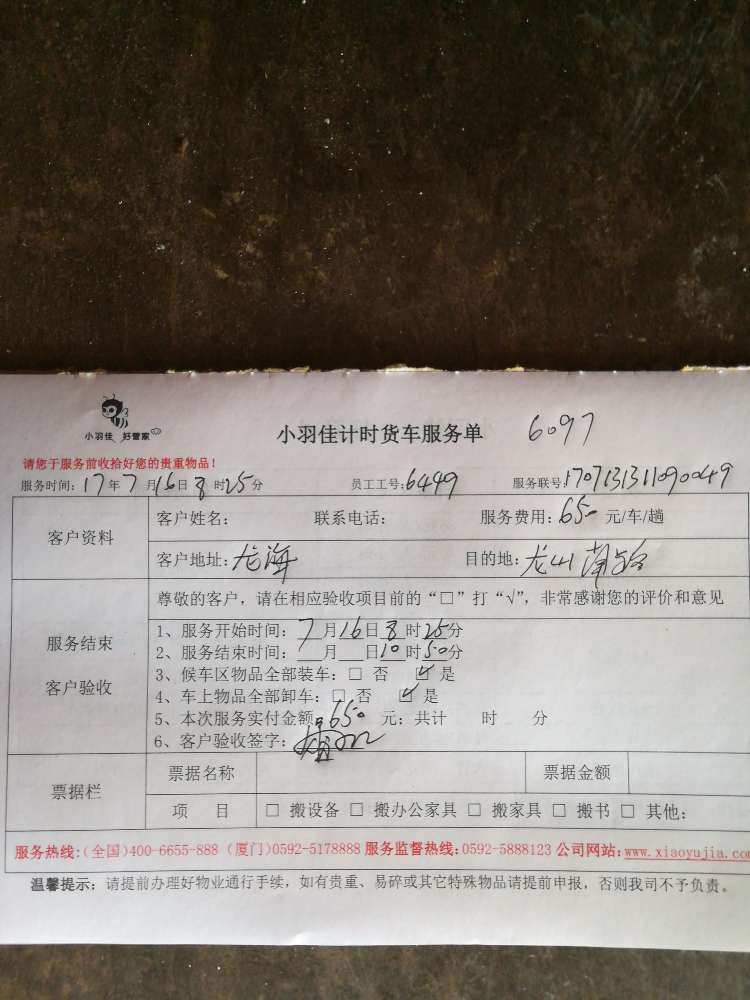 小羽佳 好管家
小羽佳计时货车服务单 6097
请您于服务前收拾好您的贵重物品!
服务时间: 17年7月16日8时25分 员工工号: 6449 服务联号: 1707131311090049
客户资料
客户姓名: 联系电话: 服务费用: 650 元/车/趟
客户地址: 龙海 目的地: 龙山南路
服务结束
客户验收
尊敬的客户,请在相应验收项目前的“□”打“√”,非常感谢您的评价和意见
1、服务开始时间: 7月16日8时25分
2、服务结束时间: 月 日10时50分
3、候车区物品全部装车: □ 否 ☑ 是
4、车上物品全部卸车: □ 否 ☑ 是
5、本次服务实付金额: 650 元; 共计 时 分
6、客户验收签字:
票据栏
票据名称 票据金额
项 目 □ 搬设备 □ 搬办公家具 □ 搬家具 □ 搬书 □ 其他:
服务热线:(全国)400-6655-888 (厦门)0592-5178888 服务监督热线:0592-5888123 公司网站:www.xiaoyujia.com
温馨提示: 请提前办理好物业通行手续,如有贵重、易碎或其它特殊物品请提前申报,否则我司不予负责。